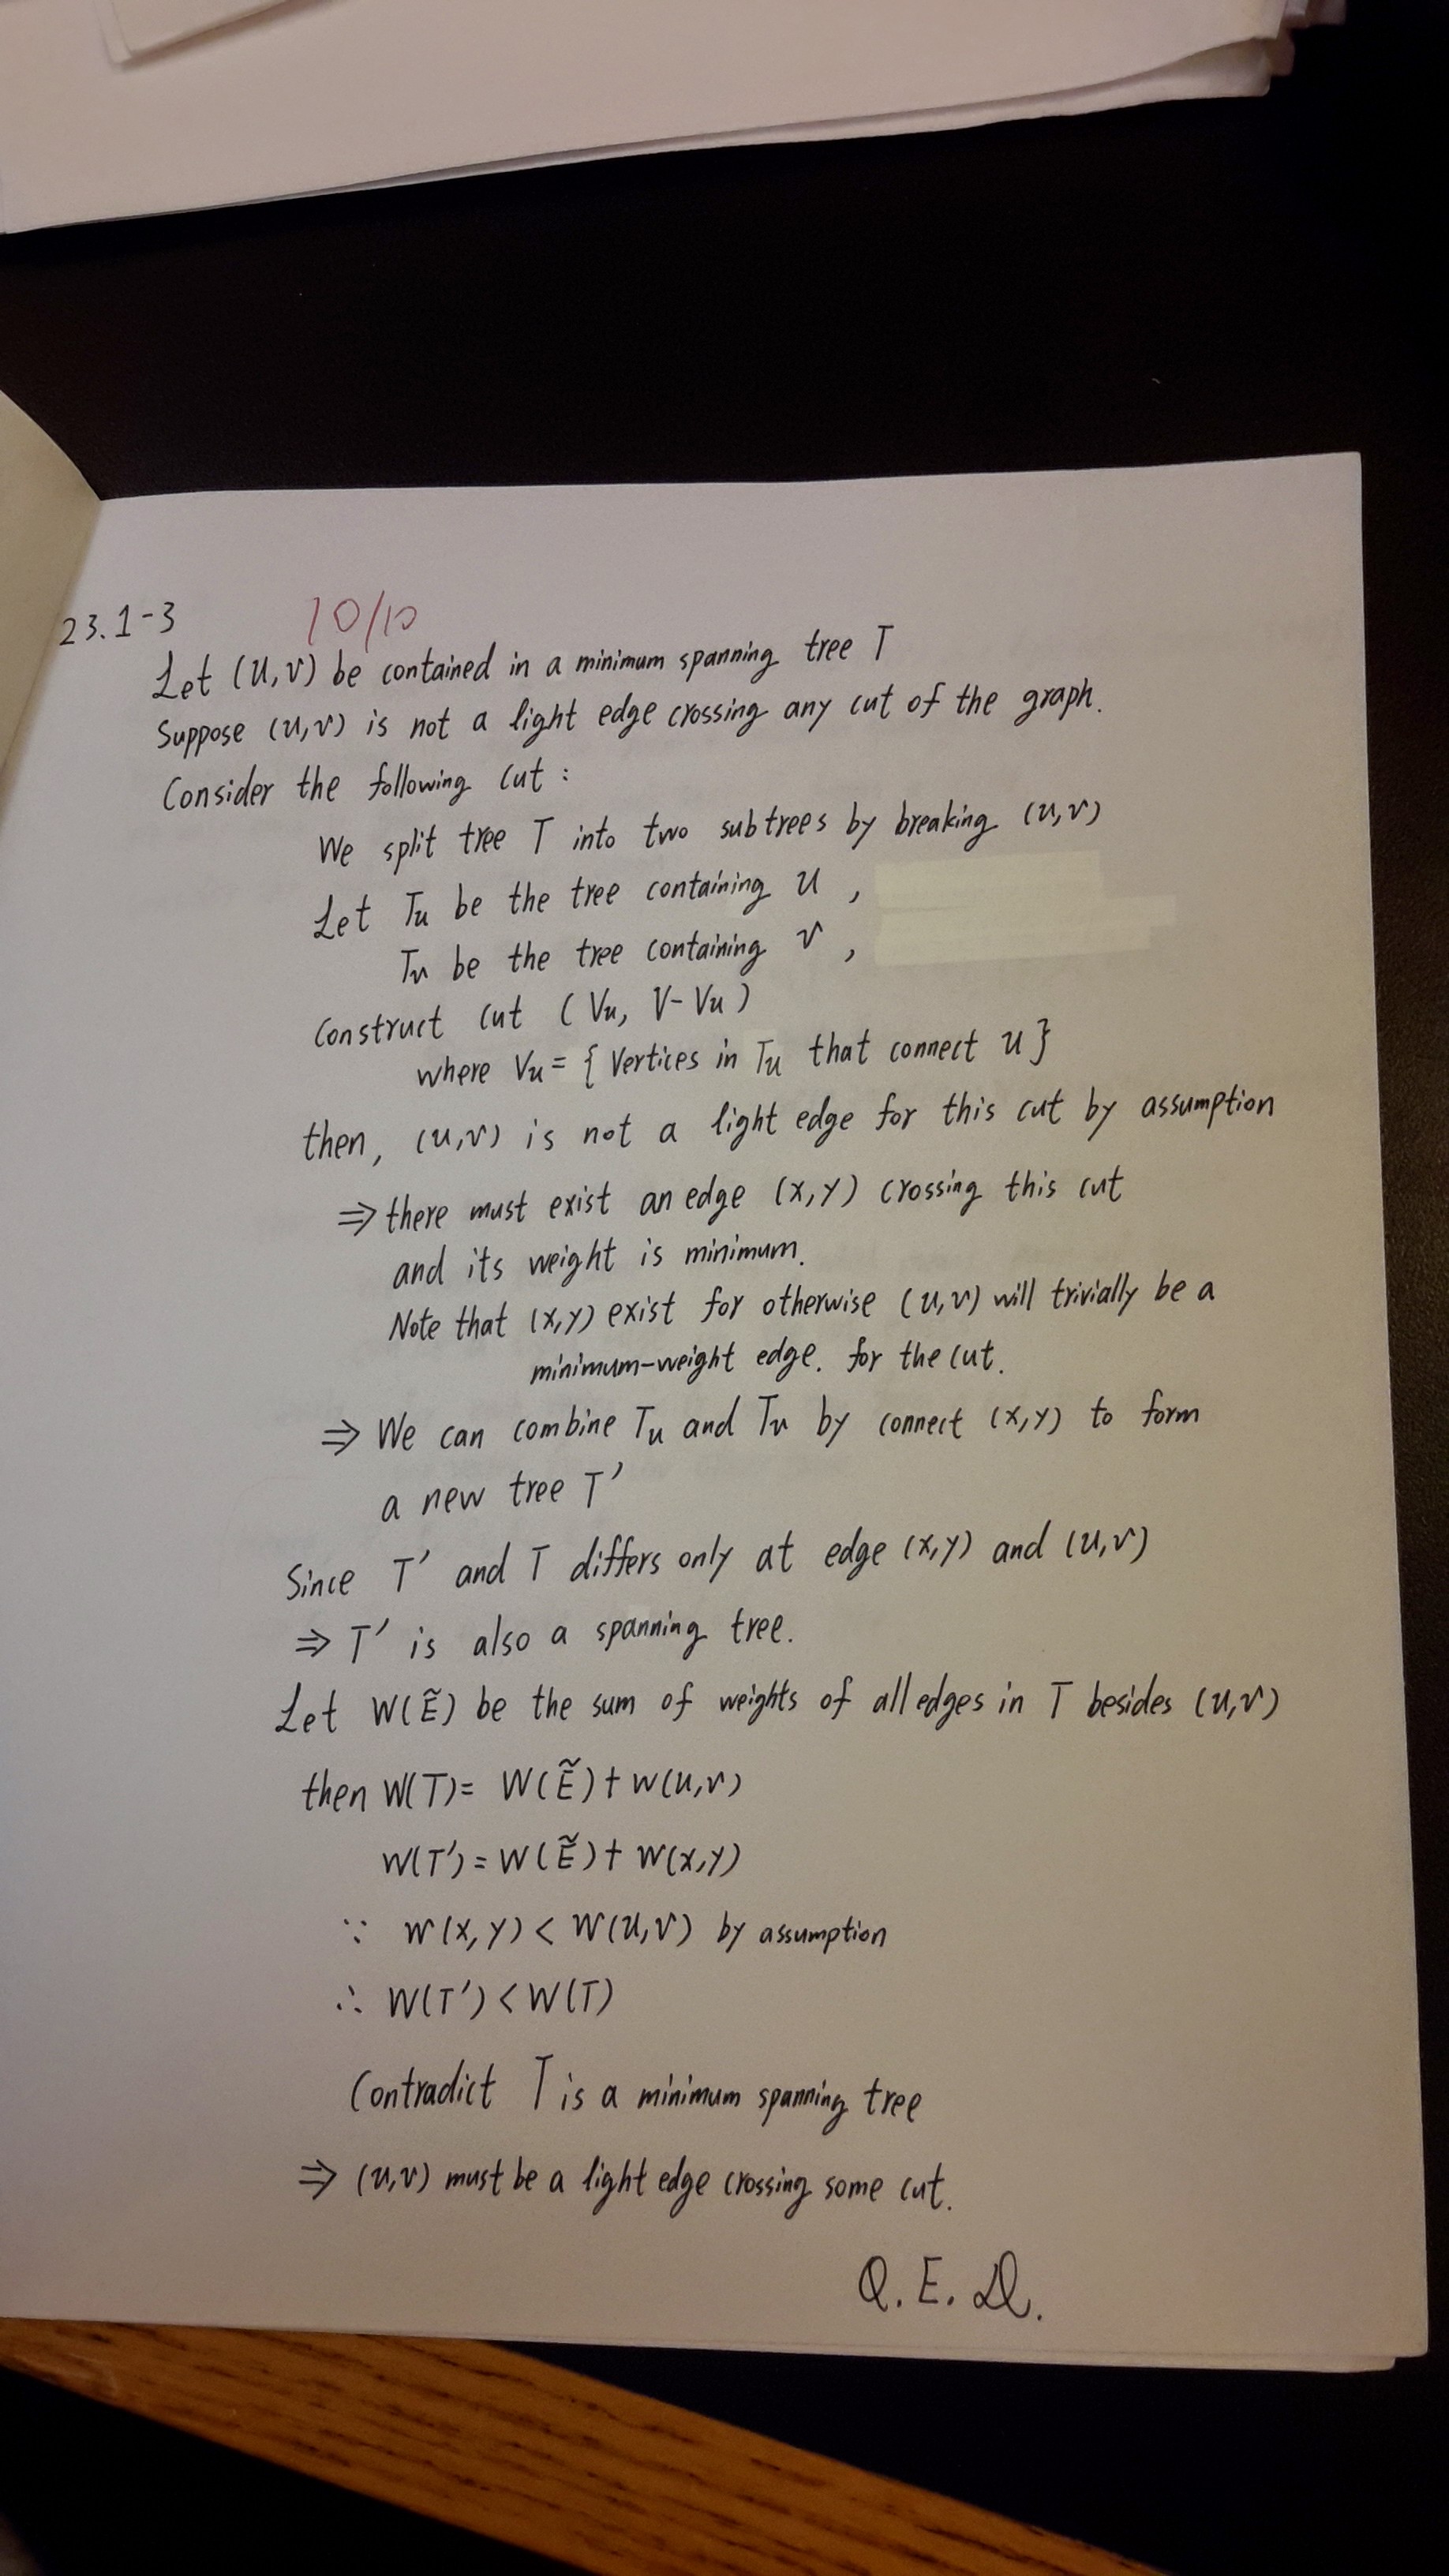 23.1-3
10/10
Let (u,v) be contained in a minimum spanning tree T
Suppose (u,v) is not a light edge crossing any cut of the graph.
Consider the following cut :
We split tree T into two subtrees by breaking (u,v)
Let Tu be the tree containing u ,
Tv be the tree containing v ,
Construct cut (Vu, V-Vu)
where Vu = { Vertices in Tu that connect u }
then, (u,v) is not a light edge for this cut by assumption
⇒ there must exist an edge (x,y) crossing this cut
and its weight is minimum.
Note that (x,y) exist for otherwise (u,v) will trivially be a
minimum-weight edge. for the cut.
⇒ We can combine Tu and Tv by connect (x,y) to form
a new tree T'
Since T' and T differs only at edge (x,y) and (u,v)
⇒ T' is also a spanning tree.
Let W(Ẽ) be the sum of weights of all edges in T besides (u,v)
then W(T) = W(Ẽ) + w(u,v)
W(T') = W(Ẽ) + W(x,y)
∵ w(x,y) < W(u,v) by assumption
∴ W(T') < W(T)
Contradict T is a minimum spanning tree
⇒ (u,v) must be a light edge crossing some cut.
Q.E.D.